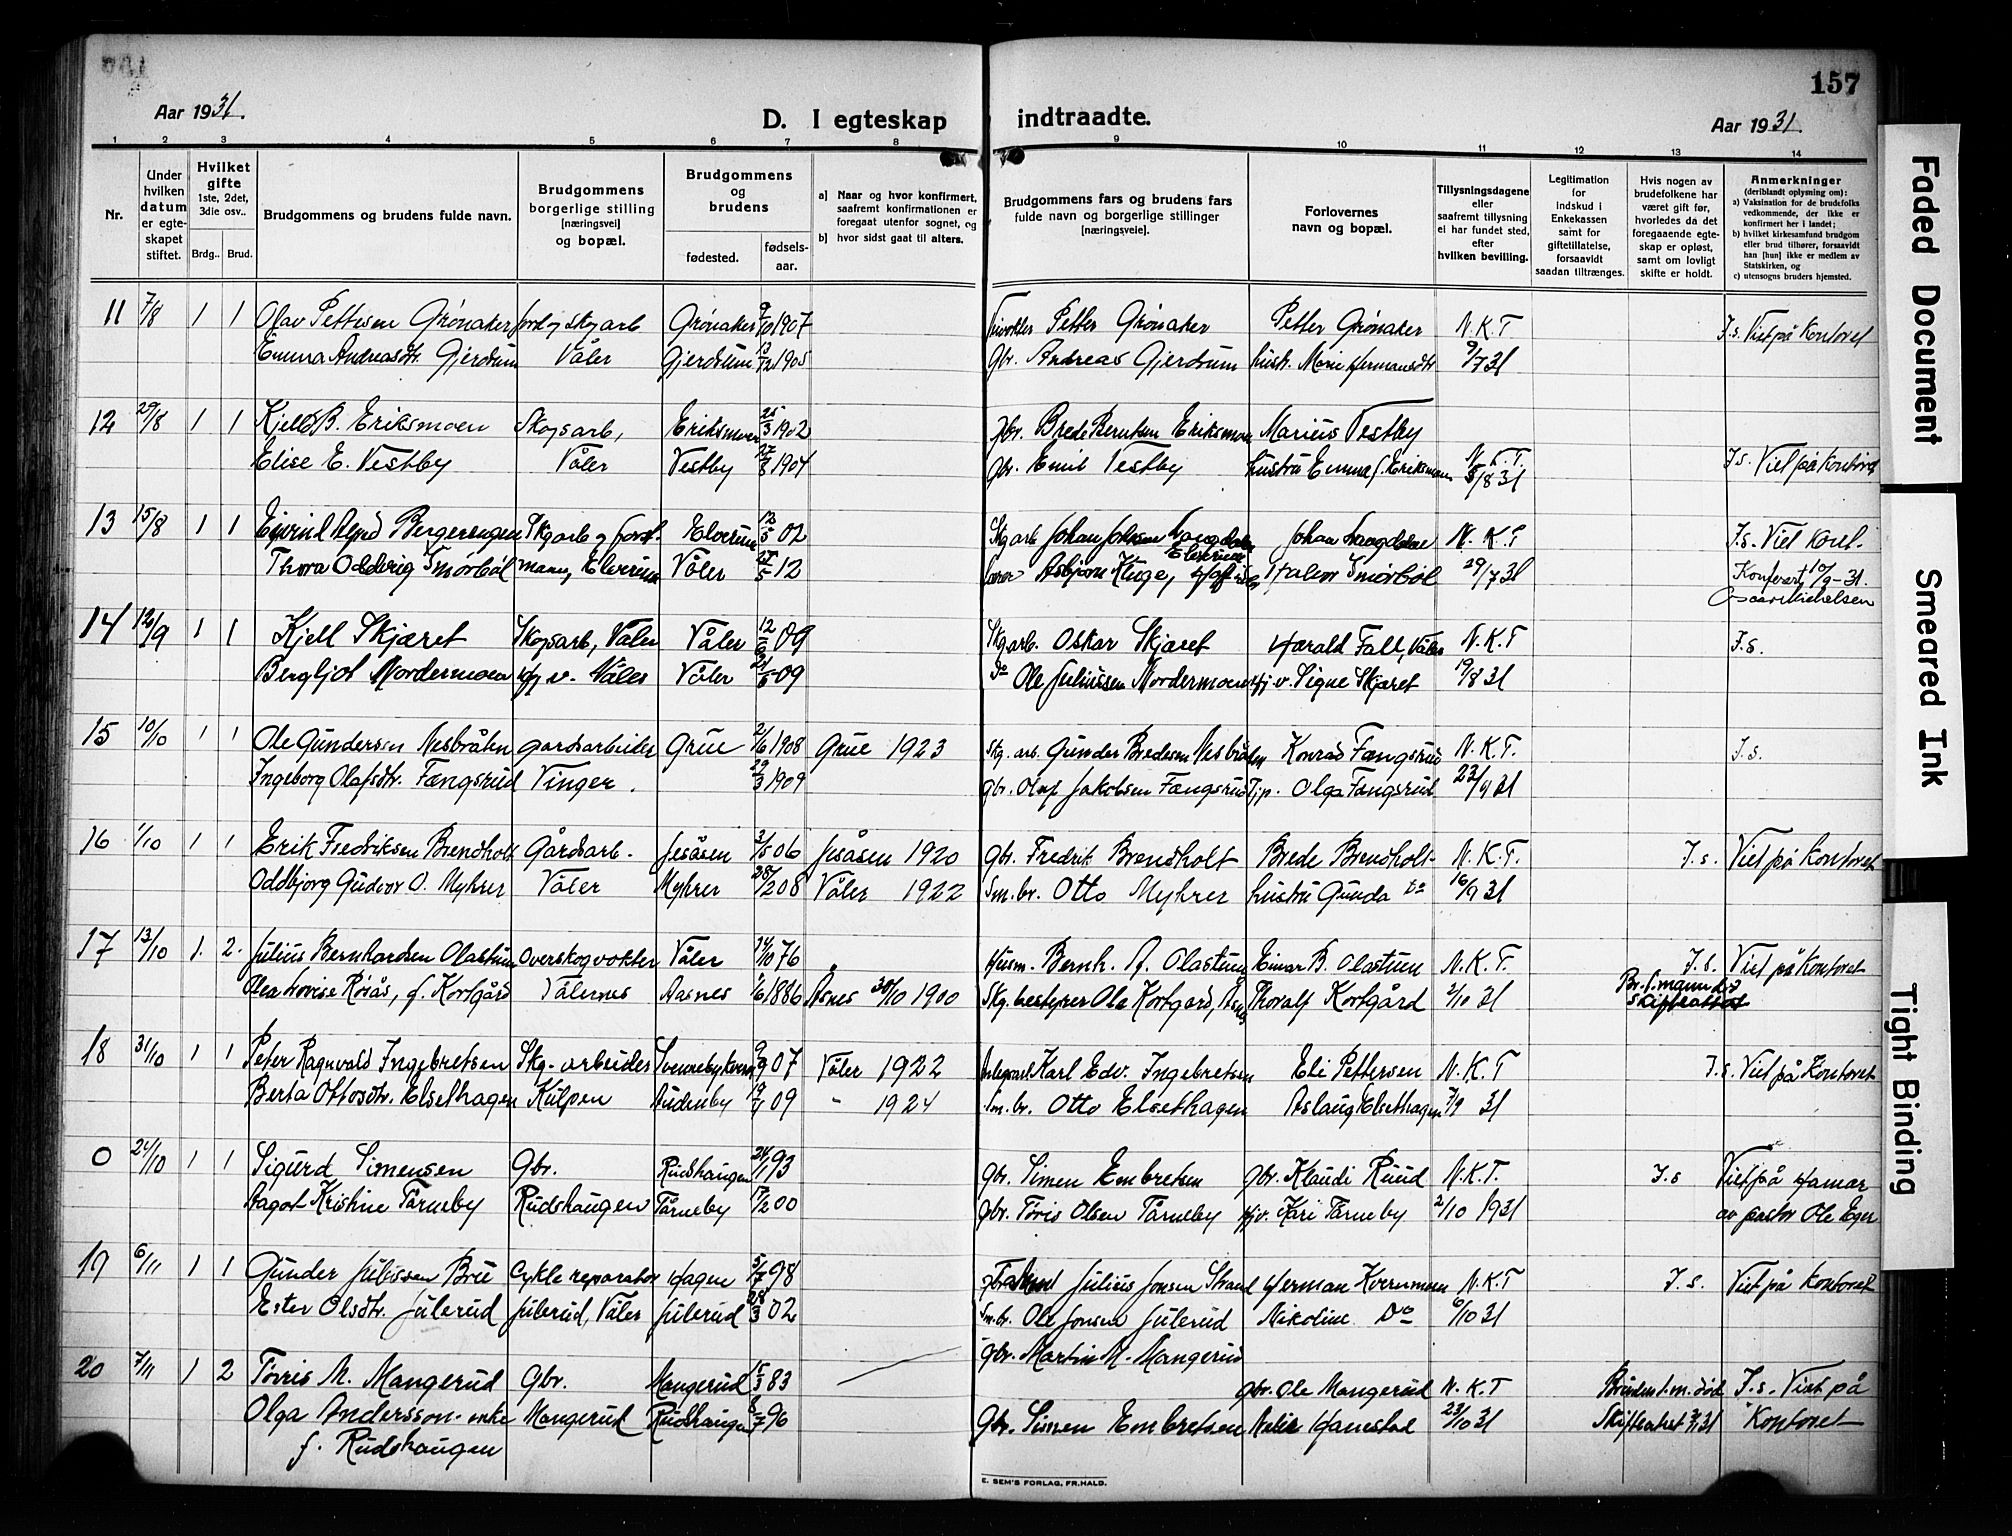 157
Aar 1931.
D. I egteskap indtraadte.
Aar 1931.
1 2 3 4 5 6 7 8 9 10 11 12 13 14
Nr.
Under hvilken datum er egteskapet stiftet.
Hvilket gifte 1ste, 2det, 3die osv..
Brdg.. Brud.
Brudgommens og brudens fulde navn.
Brudgommens borgerlige stilling [næringsvei] og bopæl.
Brudgommens og brudens
fødested. fødselsaar.
a) Naar og hvor konfirmert, saafremt konfirmationen er foregaat utenfor sognet, og
b) hvor sidst gaat til alters.
Brudgommens fars og brudens fars fulde navn og borgerlige stillinger [næringsveie].
Forlovernes navn og bopæl.
Tillysningsdagene eller saafremt tillysning ei har fundet sted, efter hvilken bevilling.
Legitimation for indskud i Enkekassen samt for giftetillatelse, forsaavidt saadan tiltrænges.
Hvis nogen av brudefolkene har været gift før, hvorledes da det foregaaende egteskap er opløst, samt om lovligt skifte er holdt.
Anmerkninger (deriblandt oplysning om):
a) Vaksination for de brudefolks vedkommende, der ikke er konfirmert her i landet;
b) hvilket kirkesamfund brudgom eller brud tilhører, forsaavidt han [hun] ikke er medlem av Statskirken, og
c) utensogns bruders hjemsted.
11 7/8 1 1 Olav Pettersen Grønaker jord og skogarb Grønaker 9/10 1907 Petter Grønaker Petter Grønaker N.K.T J.s. Viet på Kontoret
Emma Andreasdtr. Gjerdrum Våler Gjerdrum 1905 Gbr. Andreas Gjerdrum hustr. Marie Hermansdtr 9/7 31
12 29/8 1 1 Kjell B. Eriksmoen Skogsarb, Eriksmoen 25/3 1902 Gbr. Brede Berntsen Eriksmoen Marius Vestby
Elise E. Vestby Våler Vestby 1904 Gbr. Emil Vestby hustru Emma f. Eriksmoen N.K.T. 5/8 31 J.s. Viet på kontoret
13 15/8 1 1 Bergerengen Skgarb og forst- Elverum 12/5 02 Skgarb Johan Johnsen Langdalen Elverum Johan Langdalen N.K.T J.s. Viet Kont.
Thora Oddrig Smørbøl mann, Elverum Våler 12 Asbjørn Kluge, Halvor Smørbøl 29/7 31 Konferert 10/9-31.
Oscar Michelsen
14 12/9 1 1 Kjell Skjæret Skogsarb, Våler Våler 12/6 09 Skgarb. Oskar Skjæret Harald Fall, Våler N.K.T J.s.
Bergljot Nordermoen Hj v. Våler Våler 21/5 09 Do Ole Juliussen Nordermoen Hj. v. Signe Skjæret 19/8 31
15 10/10 1 1 Ole Gundersen Nesbråten gardsarbeider Grue 2/6 1908 Grue 1923 Skg. arb. Gunder Bredesen Nesbråten Konrad Fængsrud N.K.T. J.s.
Ingeborg Olafsdtr. Fængsrud Vinger. 29/3 1909 Gbr. Olaf Jakobsen Fængsrud Tjp. Olga Fængsrud 22/9 31
16 1/10 1 1 Erik Fredriksen Brendholt Gårdsarb. Jesåsen 3/5 06 Jesåsen 1920 Gbr. Fredrik Brendholt Brede Brendholt N.K.T. J.s. Viet på Kontoret
Oddbjørg Gudvor O. Myhrer Våler Myhrer 28/2 08 Våler 1922 Sm.br. Otto Myhrer hustru Gunda Do 16/9 31
17 13/10 1. 2. Julius Bernhardsen Olastuen Overskogvokter Våler 14/10 76 Husm. Bernh. A. Olastuen Einar B. Olastuen N.K.T. J.s. Viet på Kontoret
Olea Lovise Røsås, f. Kortgård Vålernes Aasnes 1/6 1886 Åsnes 30/10 1900 Skg.bestyrer Ole Kortgård, Åsnes Thoralf Kortgård 2/10 31 Br. f. mann død
Skifteattest
18 31/10 1 1 Peter Ragnvald Ingebretsen Skg-arbeider Svennebykvern 9/9 07 Våler 1922 Karl Edv. Ingebretsen Eli Pettersen N.K.T J.s. Viet på Kontoret
Berta Ottosdtr. Elsethagen Kulpen Auduby 09 " 1924 Sm.br. Otto Elsethagen Aslaug Elsethagen 7/9 31
0 24/10 1 1 Sigurd Simensen Gbr. Rudshaugen 24/1 93 Gbr. Simen Embretsen Gbr. Klaudi Ruud N.K.T. J.s Viet på Hamar
Aagot Kristine Tårneby Rudshaugen Tårneby 00 Gbr. Tøris Olsen Tårneby Hjv. Kari Tårneby 2/10 1931 av pastor Ole Eger
19 6/11 1 1 Gunder Juliussen Bru Cykle reparatør Hagen 5/7 98 Julius Jonsen Strand Herman Kvernmoen N.K.T J.s. Viet på Kontoret
Ester Olsdtr. Julerud Julerud, Våler Julerud 28/3 02 Sm.br. Ole Jonsen Julerud Nikoline Do 6/10 31
20 7/11 1 2 Tørris M. Mangerud Gbr. Mangerud 15/3 83 Gbr. Martin M. Mangerud Gbr. Ole Mangerud N.K.T Brudens f.m. død J.s. Viet på
Olga Andersson enke Mangerud Rudshaugen 8/7 96 Gbr. Simen Embretsen Hanestad 23/10 31 Skifteattest 31 Kontoret
f. Rudshaugen
E. SEM'S FORLAG, FR.HALD.
Faded Document
Smeared Ink
Tight Binding